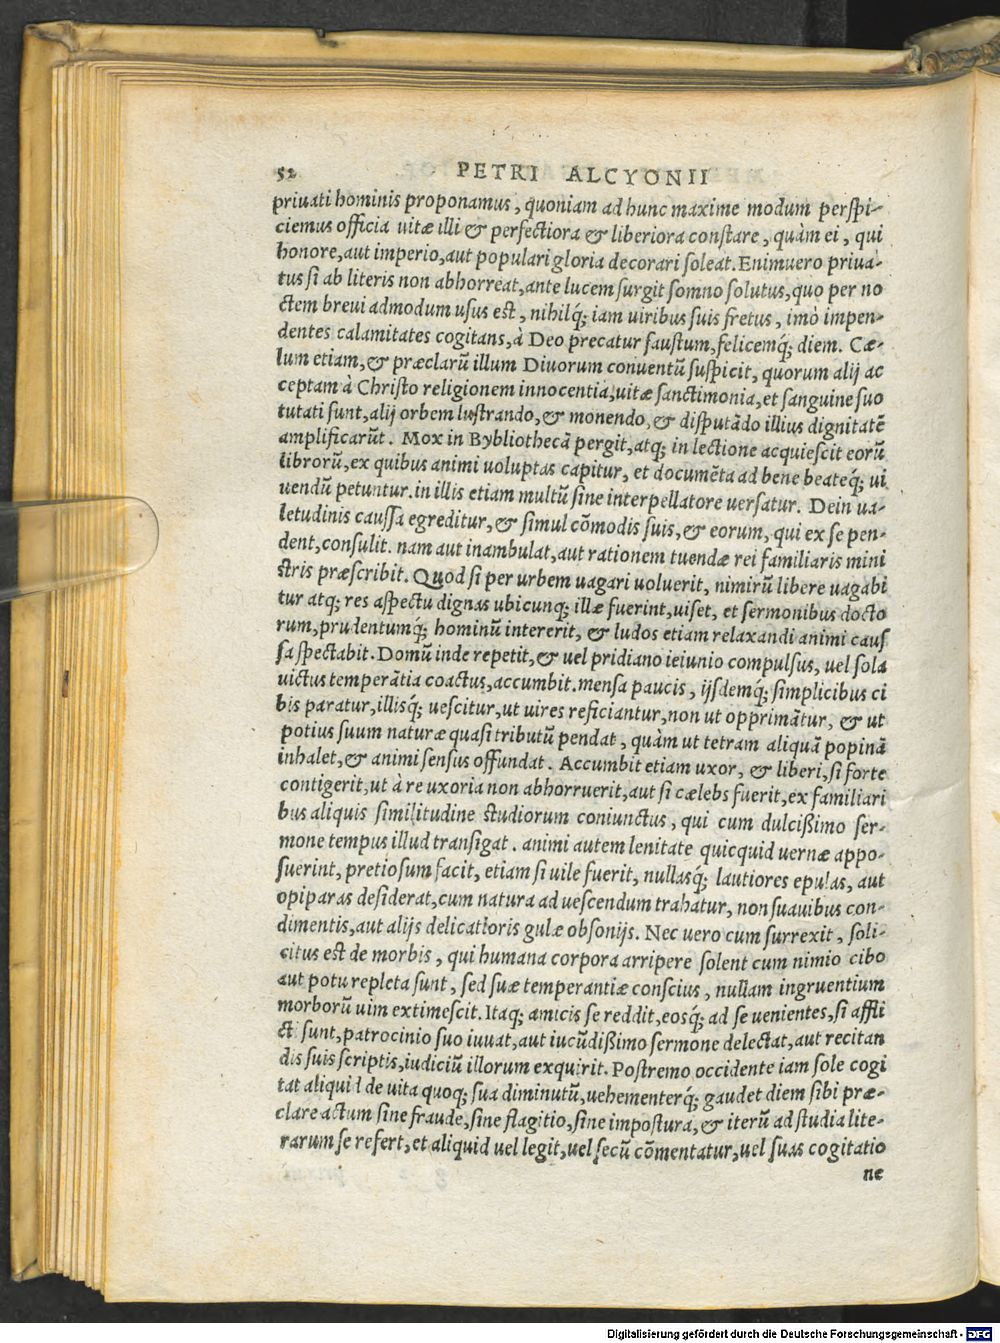 52 PETRI ALCYONII
priuati hominis proponamus, quoniam ad hunc maxime modum perspi-
ciemus officia uitæ illi & perfectiora & liberiora constare, quàm ei, qui
honore, aut imperio, aut populari gloria decorari soleat. Enimuero priua-
tus si ab literis non abhorreat, ante lucem surgit somno solutus, quo per no
ctem breui admodum usus est, nihilq́; iam uiribus suis fretus, imò impen-
dentes calamitates cogitans, à Deo precatur faustum, felicemq́; diem. Cæ-
lum etiam, & præclarũ illum Diuorum conuentũ suspicit, quorum alij ac
ceptam à Christo religionem innocentia, uitæ sanctimonia, et sanguine suo
tutati sunt, alij orbem lustrando, & monendo, & disputãdo illius dignitatẽ
amplificarũt. Mox in Bybliothecã pergit, atq; in lectione acquiescit eorũ
librorũ, ex quibus animi uoluptas capitur, et documẽta ad bene beateq́; ui
uendũ petuntur. in illis etiam multũ sine interpellatore uersatur. Dein ua-
letudinis caussa egreditur, & simul cõmodis suis, & eorum, qui ex se pen-
dent, consulit. nam aut inambulat, aut rationem tuendæ rei familiaris mini
stris præscribit. Quod si per urbem uagari uoluerit, nimirũ libere uagabi
tur atq; res aspectu dignas ubicunq; illæ fuerint, uiset, et sermonibus docto
rum, prudentumq́; hominũ intererit, & ludos etiam relaxandi animi caus
sa spectabit. Domũ inde repetit, & uel pridiano ieiunio compulsus, uel sola
uictus temperãtia coactus, accumbit. mensa paucis, ijsdemq́; simplicibus ci
bis paratur, illisq́; uescitur, ut uires reficiantur, non ut opprimãtur, & ut
potius suum naturæ quasi tributũ pendat, quàm ut tetram aliquã popinã
inhalet, & animi sensus offundat. Accumbit etiam uxor, & liberi, si forte
contigerit, ut à re uxoria non abhorruerit, aut si cælebs fuerit, ex familiari
bus aliquis similitudine studiorum coniunctus, qui cum dulcißimo ser-
mone tempus illud transigat. animi autem lenitate quicquid uernæ appo-
suerint, pretiosum facit, etiam si uile fuerit, nullasq́; lautiores epulas, aut
opiparas desiderat, cum natura ad uescendum trahatur, non suauibus con-
dimentis, aut alijs delicatioris gulæ obsonijs. Nec uero cum surrexit, soli-
citus est de morbis, qui humana corpora arripere solent cum nimio cibo
aut potu repleta sunt, sed suæ temperantiæ conscius, nullam ingruentium
morborũ uim extimescit. Itaq; amicis se reddit, eosq́; ad se uenientes, si affli
cti sunt, patrocinio suo iuuat, aut iucũdißimo sermone delectat, aut recitan
dis suis scriptis, iudiciũ illorum exquirit. Postremo occidente iam sole cogi
tat aliquid de uita quoq; sua diminutũ, uehementerq́; gaudet diem sibi præ-
clare actum sine fraude, sine flagitio, sine impostura, & iterũ ad studia lite-
rarum se refert, et aliquid uel legit, uel secũ cõmentatur, uel suas cogitatio
ne
Digitalisierung gefördert durch die Deutsche Forschungsgemeinschaft - DFG